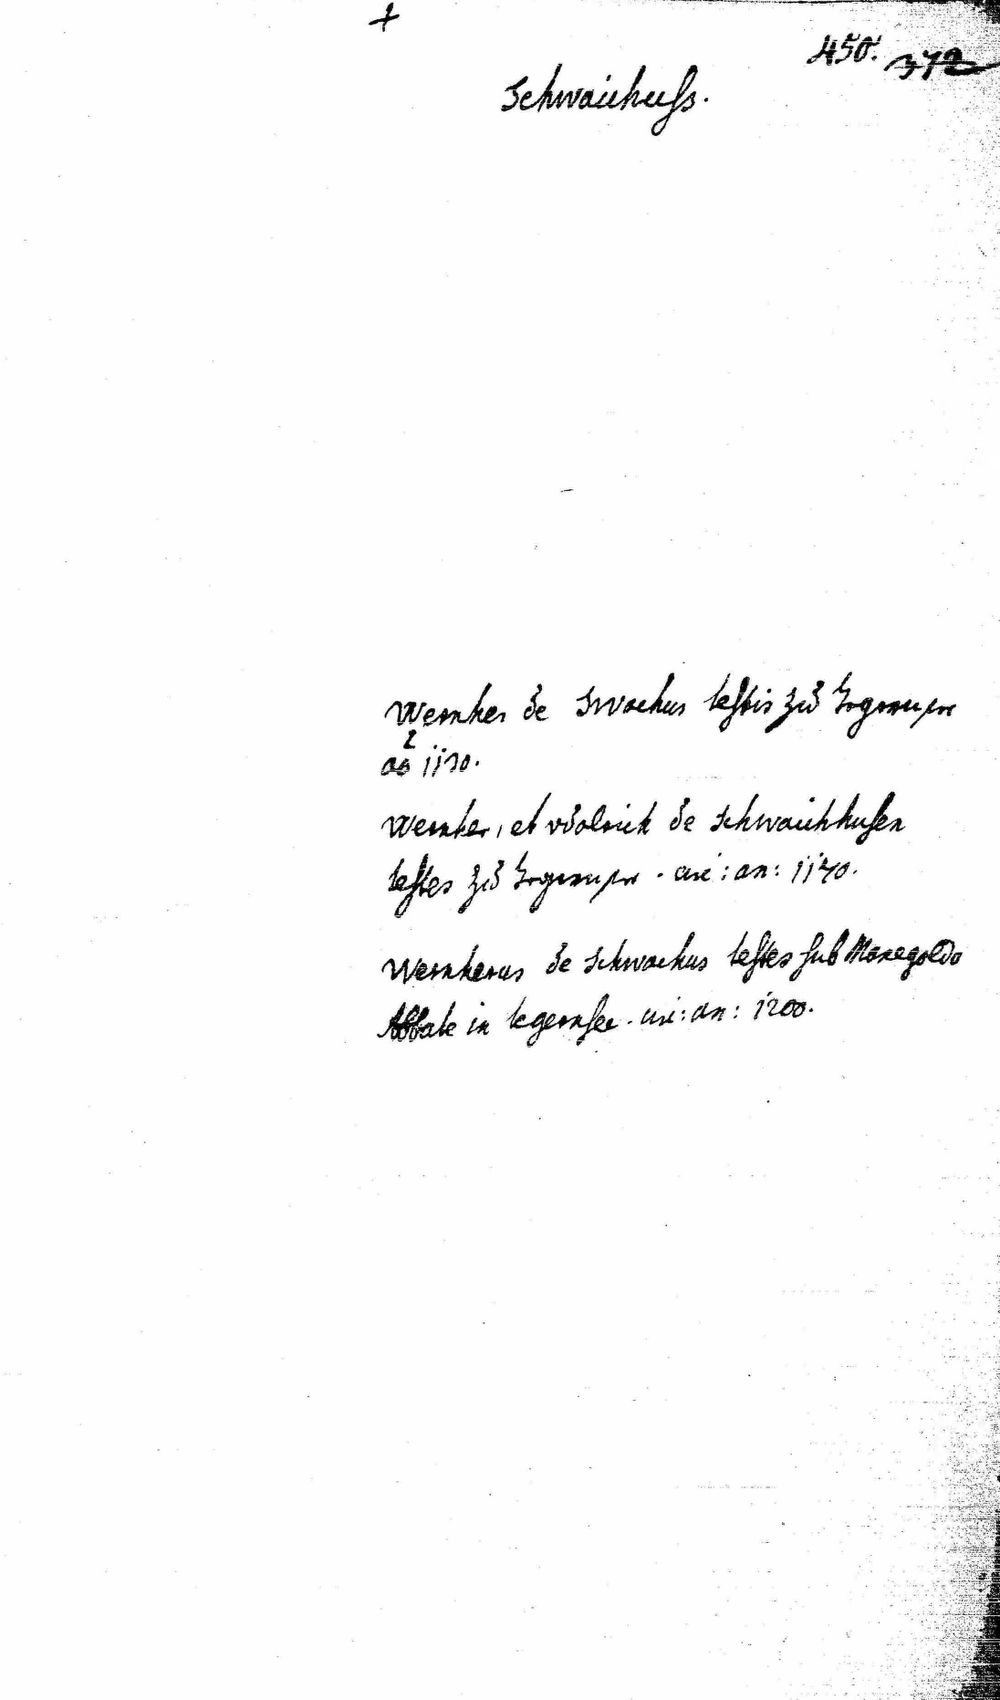 450. 372
Schwaichuss.
Wernher de Swachus testis zů
ao 1170.
Wernher, et vdalrich de schwaichhusen
testes zů . circ: an: 1140.
Wernherus de schwachus testes sub Manegoldo
Abbate in tegernsee . circ: an: 1200.